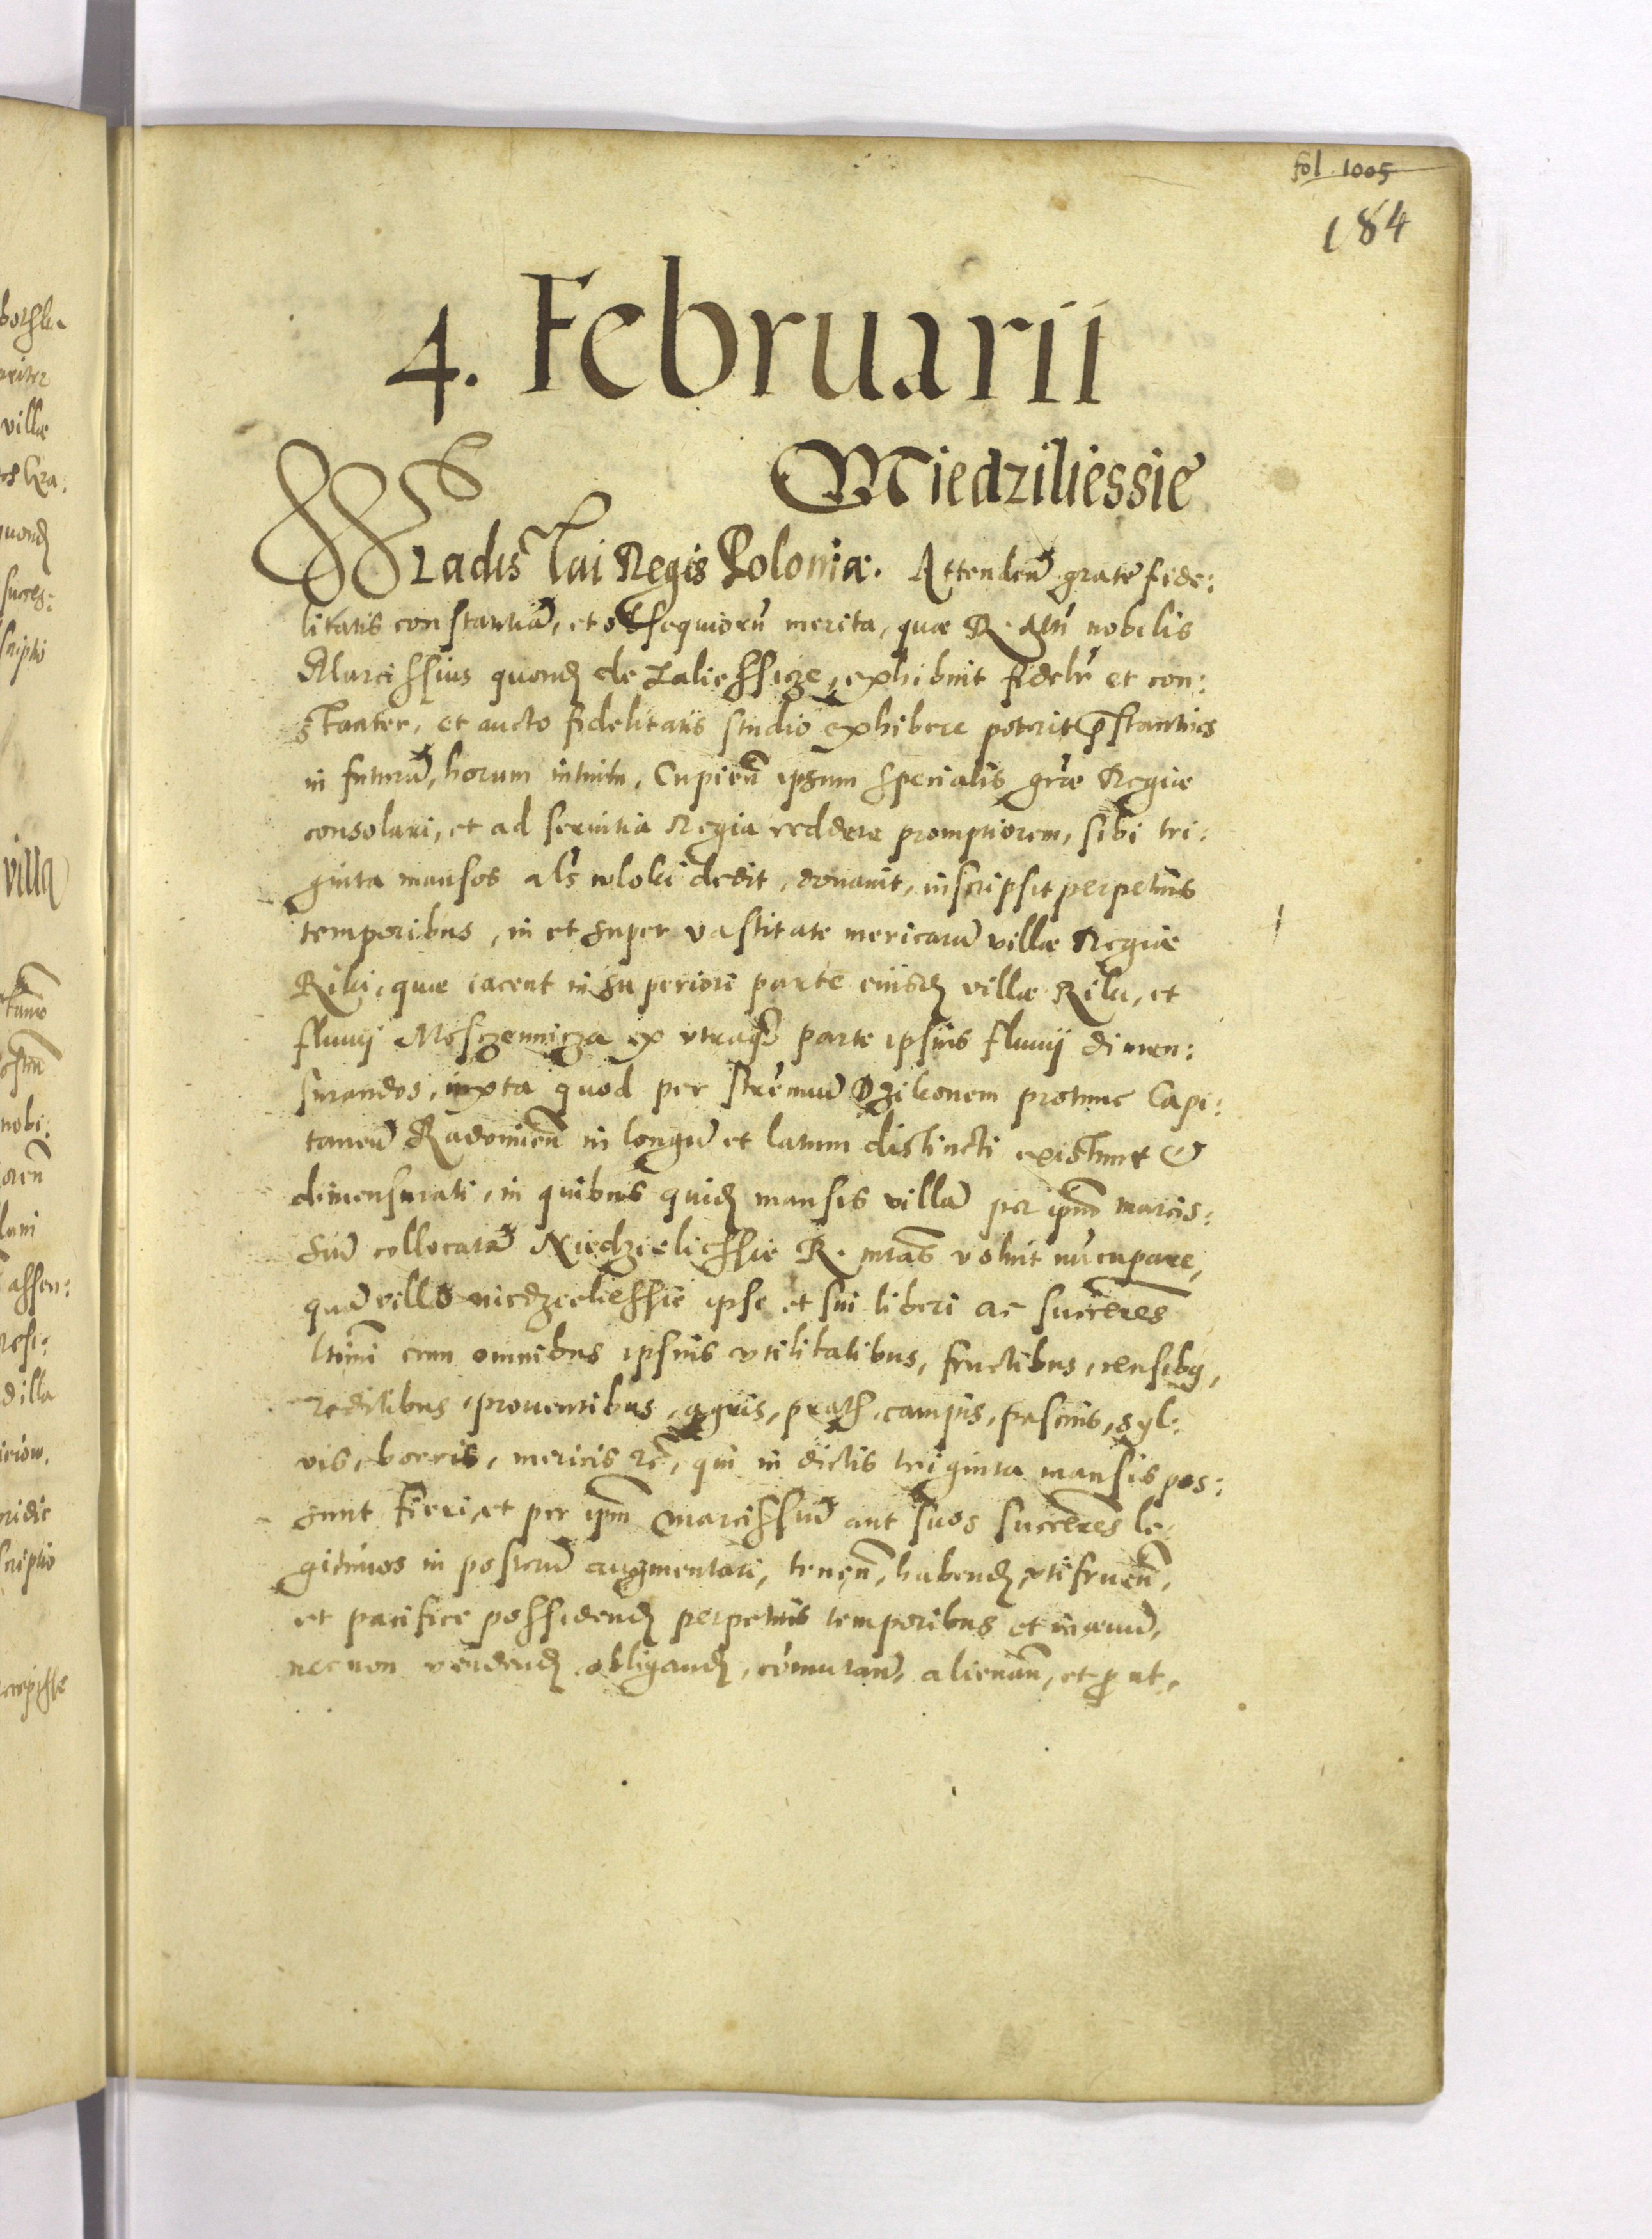 fol. 1005
184
4. Februarii
Miedziliessie
Wladislai Regis Poloniæ. Attendeñ grate fide:
litatis constantiã, et obsequiorũ merita, quæ R. Mti nobilis
Marcissius quond de Zaliessicze, exhibuit fidelr et con:
stanter, et aucto fidelitatis studio exhibere poterit pstantius
in futurũ, horum intuitu, Cupieñ ipsum specialis grae Regiæ
consolari, et ad seruitia Regia reddere promptiorem, sibi tri:
ginta mansos als wloki dedit, donauit, inscripsit perpetuis
temporibus, in et super vastitate mericarũ villæ Regiæ
Riki, quæ iacent in superiori parte eiusd villæ Riki, et
fluuij Mosczennicza ex vtraq parte ipsius fluuij dimen:
surandos, iuxta quod per strenuũ Dzikonem protunc Capi:
taneũ Radomieñ in longũ et latum distincti existunt &
dimensurati, in quibus quid mansis villã per ipm marcis:
siũ collocatã Miedzieliessie R. mtas voluit nũcupare,
quã villã miedzieliessie ipse et sui liberi ac succeres
ltimi cum omnibus ipsius vtilitatibus, fructibus, censibq,
reditibus, prouentibus, agris, pratis, campis, pascuis, syl:
vis, borris, mericis &c, qui in dictis triginta mansis pos:
sunt fieri, et per ipm marcissiũ aut suos succeres le
gitimos in posterũ augmentari, teneñ, habend, vtifrueñ,
et pacifice possidend perpetuis temporibus et in æuũ,
necnon vendend, obligand, cõmutañ, alienañ, et p ut,